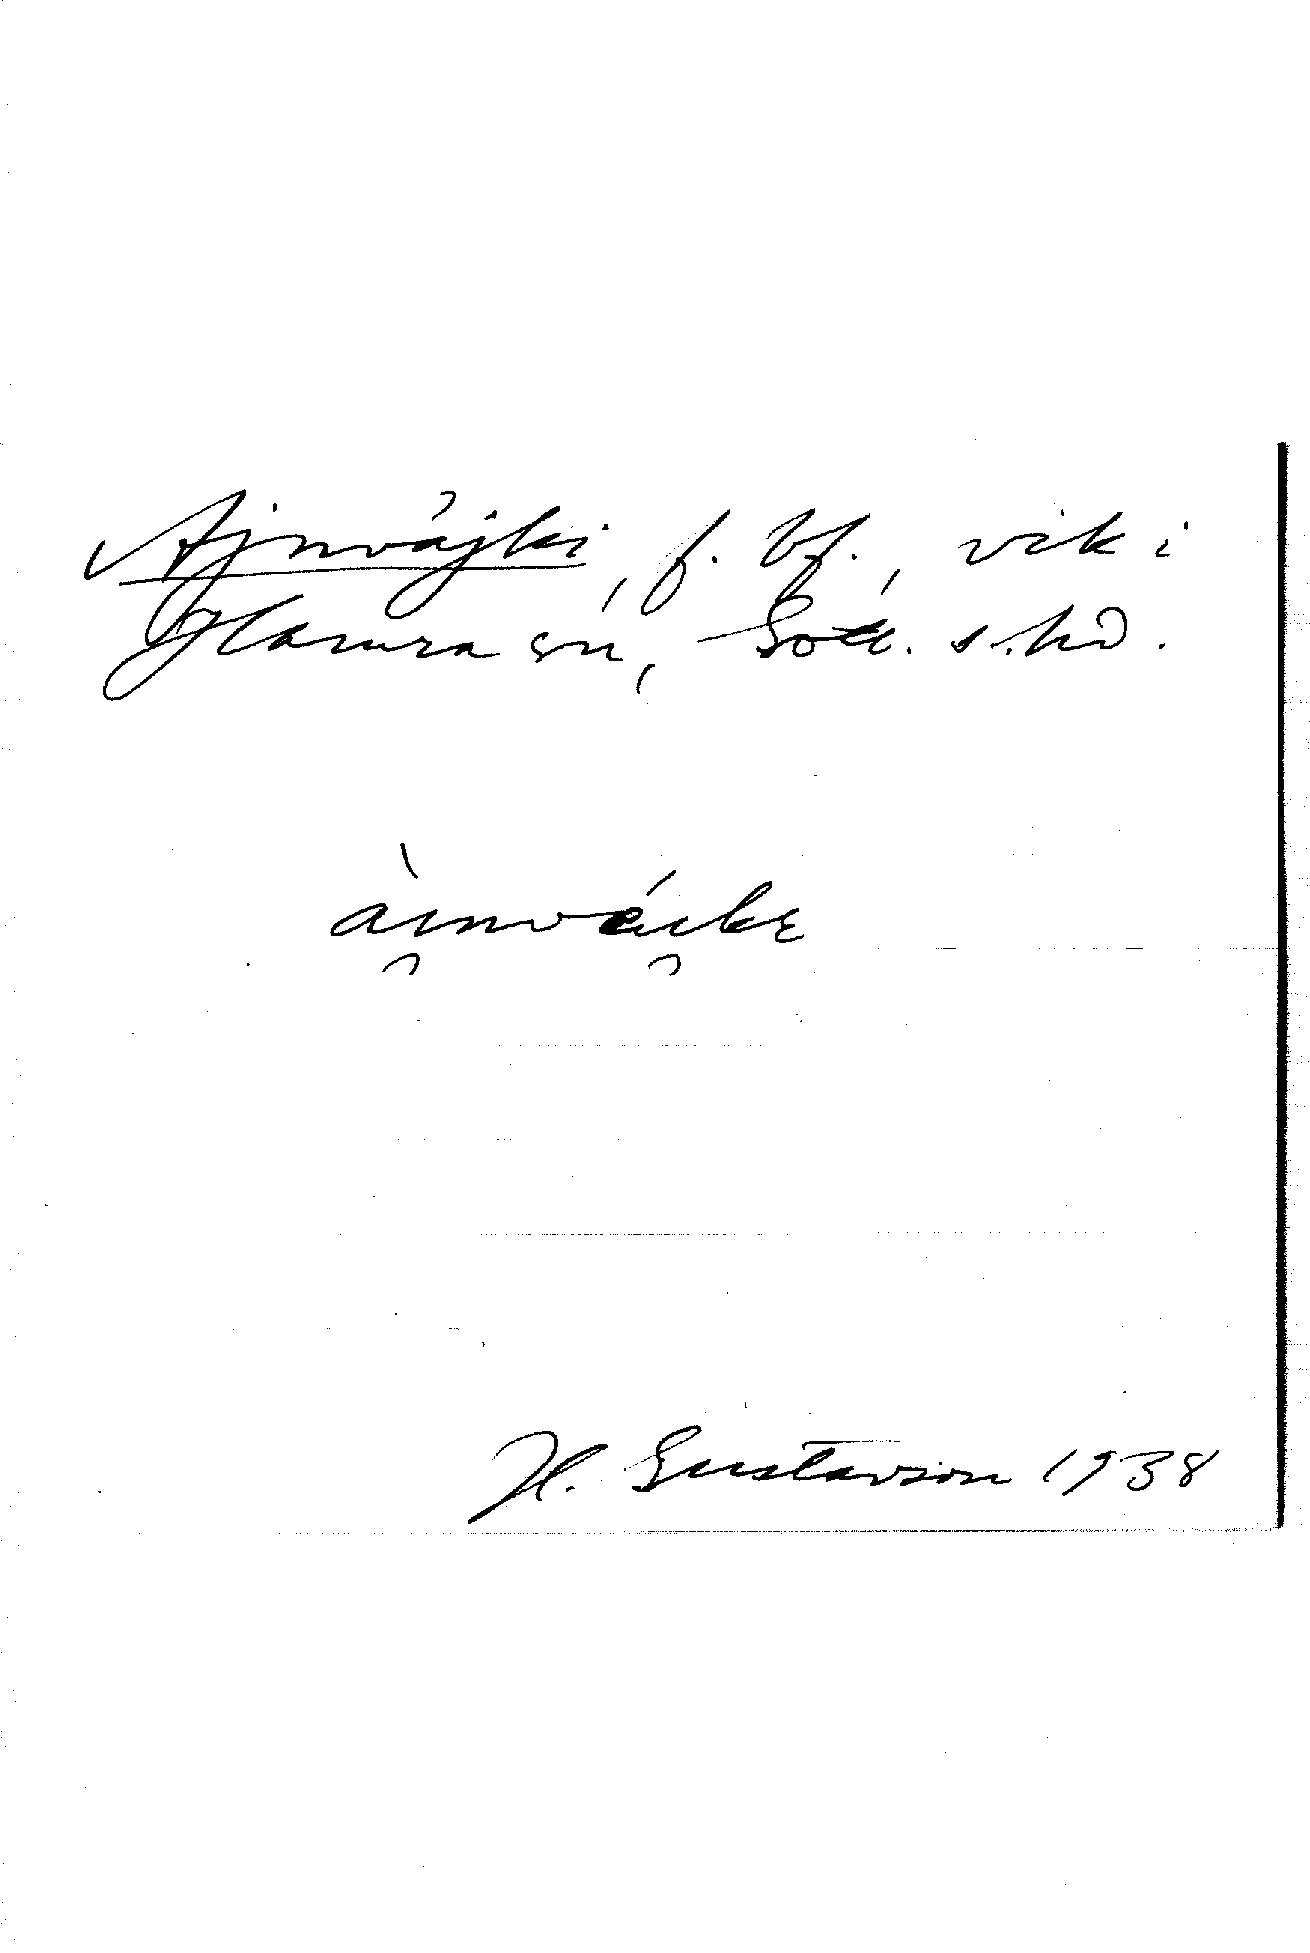 Ajnvájki, f. bf., vik i
Hamra sn, Gotl. s. hd.
àinváike
H. Gustavson 1938